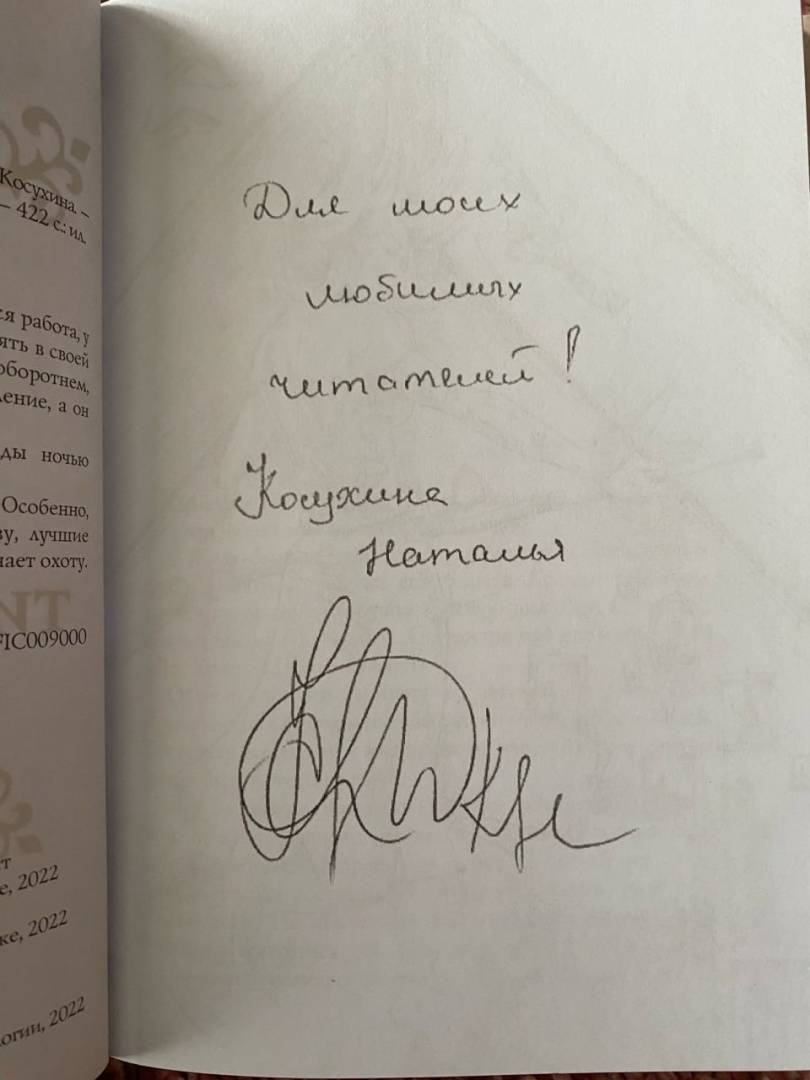 Косухина. –
– 422 с.: ил.
ся работа, у
ять в своей
оборотнем,
ение, а он
ды ночью
Особенно,
ву, лучшие
нает охоту.
FIC009000
е, 2022
ке, 2022
огии, 2022
Для моих
любимых
читателей!
Косухина
Наталья